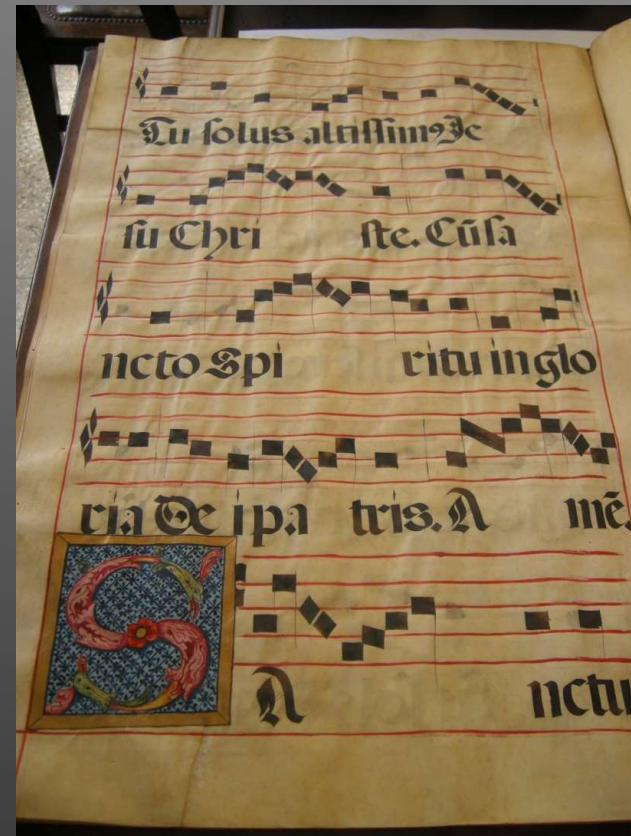 Tu solus altissimꝯ Je
su Chri ste. Cũ sa
ncto Spi ritu in glo
ria De i pa tris. A mẽ.
S A nctu